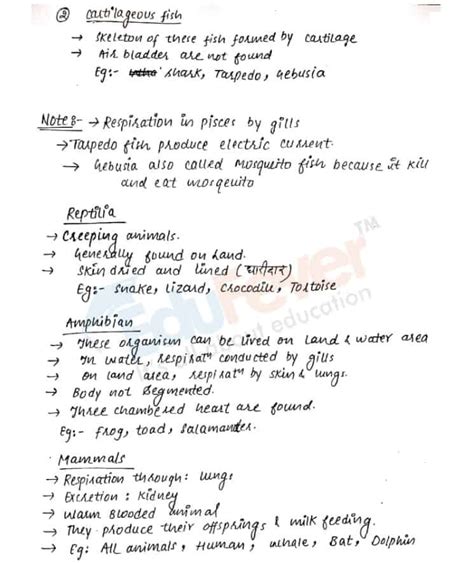 ② cartilageous fish
→ skeleton of these fish formed by cartilage
→ Air bladder are not found
Eg:- shark, Tarpedo, Gebusia
Note:- → Respiration in pisces by gills
→ Tarpedo fish produce electric current.
→ Gebusia also called Mosquito fish because it kill
and eat mosquito
Reptilia
→ Creeping animals.
→ Generally found on Land.
→ Skin dried and lined (धारीदार)
Eg:- snake, lizard, Crocodile, Tortoise
Amphibian
→ These organism can be lived on land & water area
→ In water, respiratⁿ conducted by gills
→ on land area, respiratⁿ by skin & lungs.
→ Body not segmented.
→ Three chambered heart are found.
Eg:- frog, toad, salamander.
Mammals
→ Respiration through: lungs
→ Excretion: Kidney
→ Warm Blooded animal
→ They produce their offsprings & milk feeding.
→ Eg: All animals, Human, whale, Bat, Dolphin
EduFever™
all about education